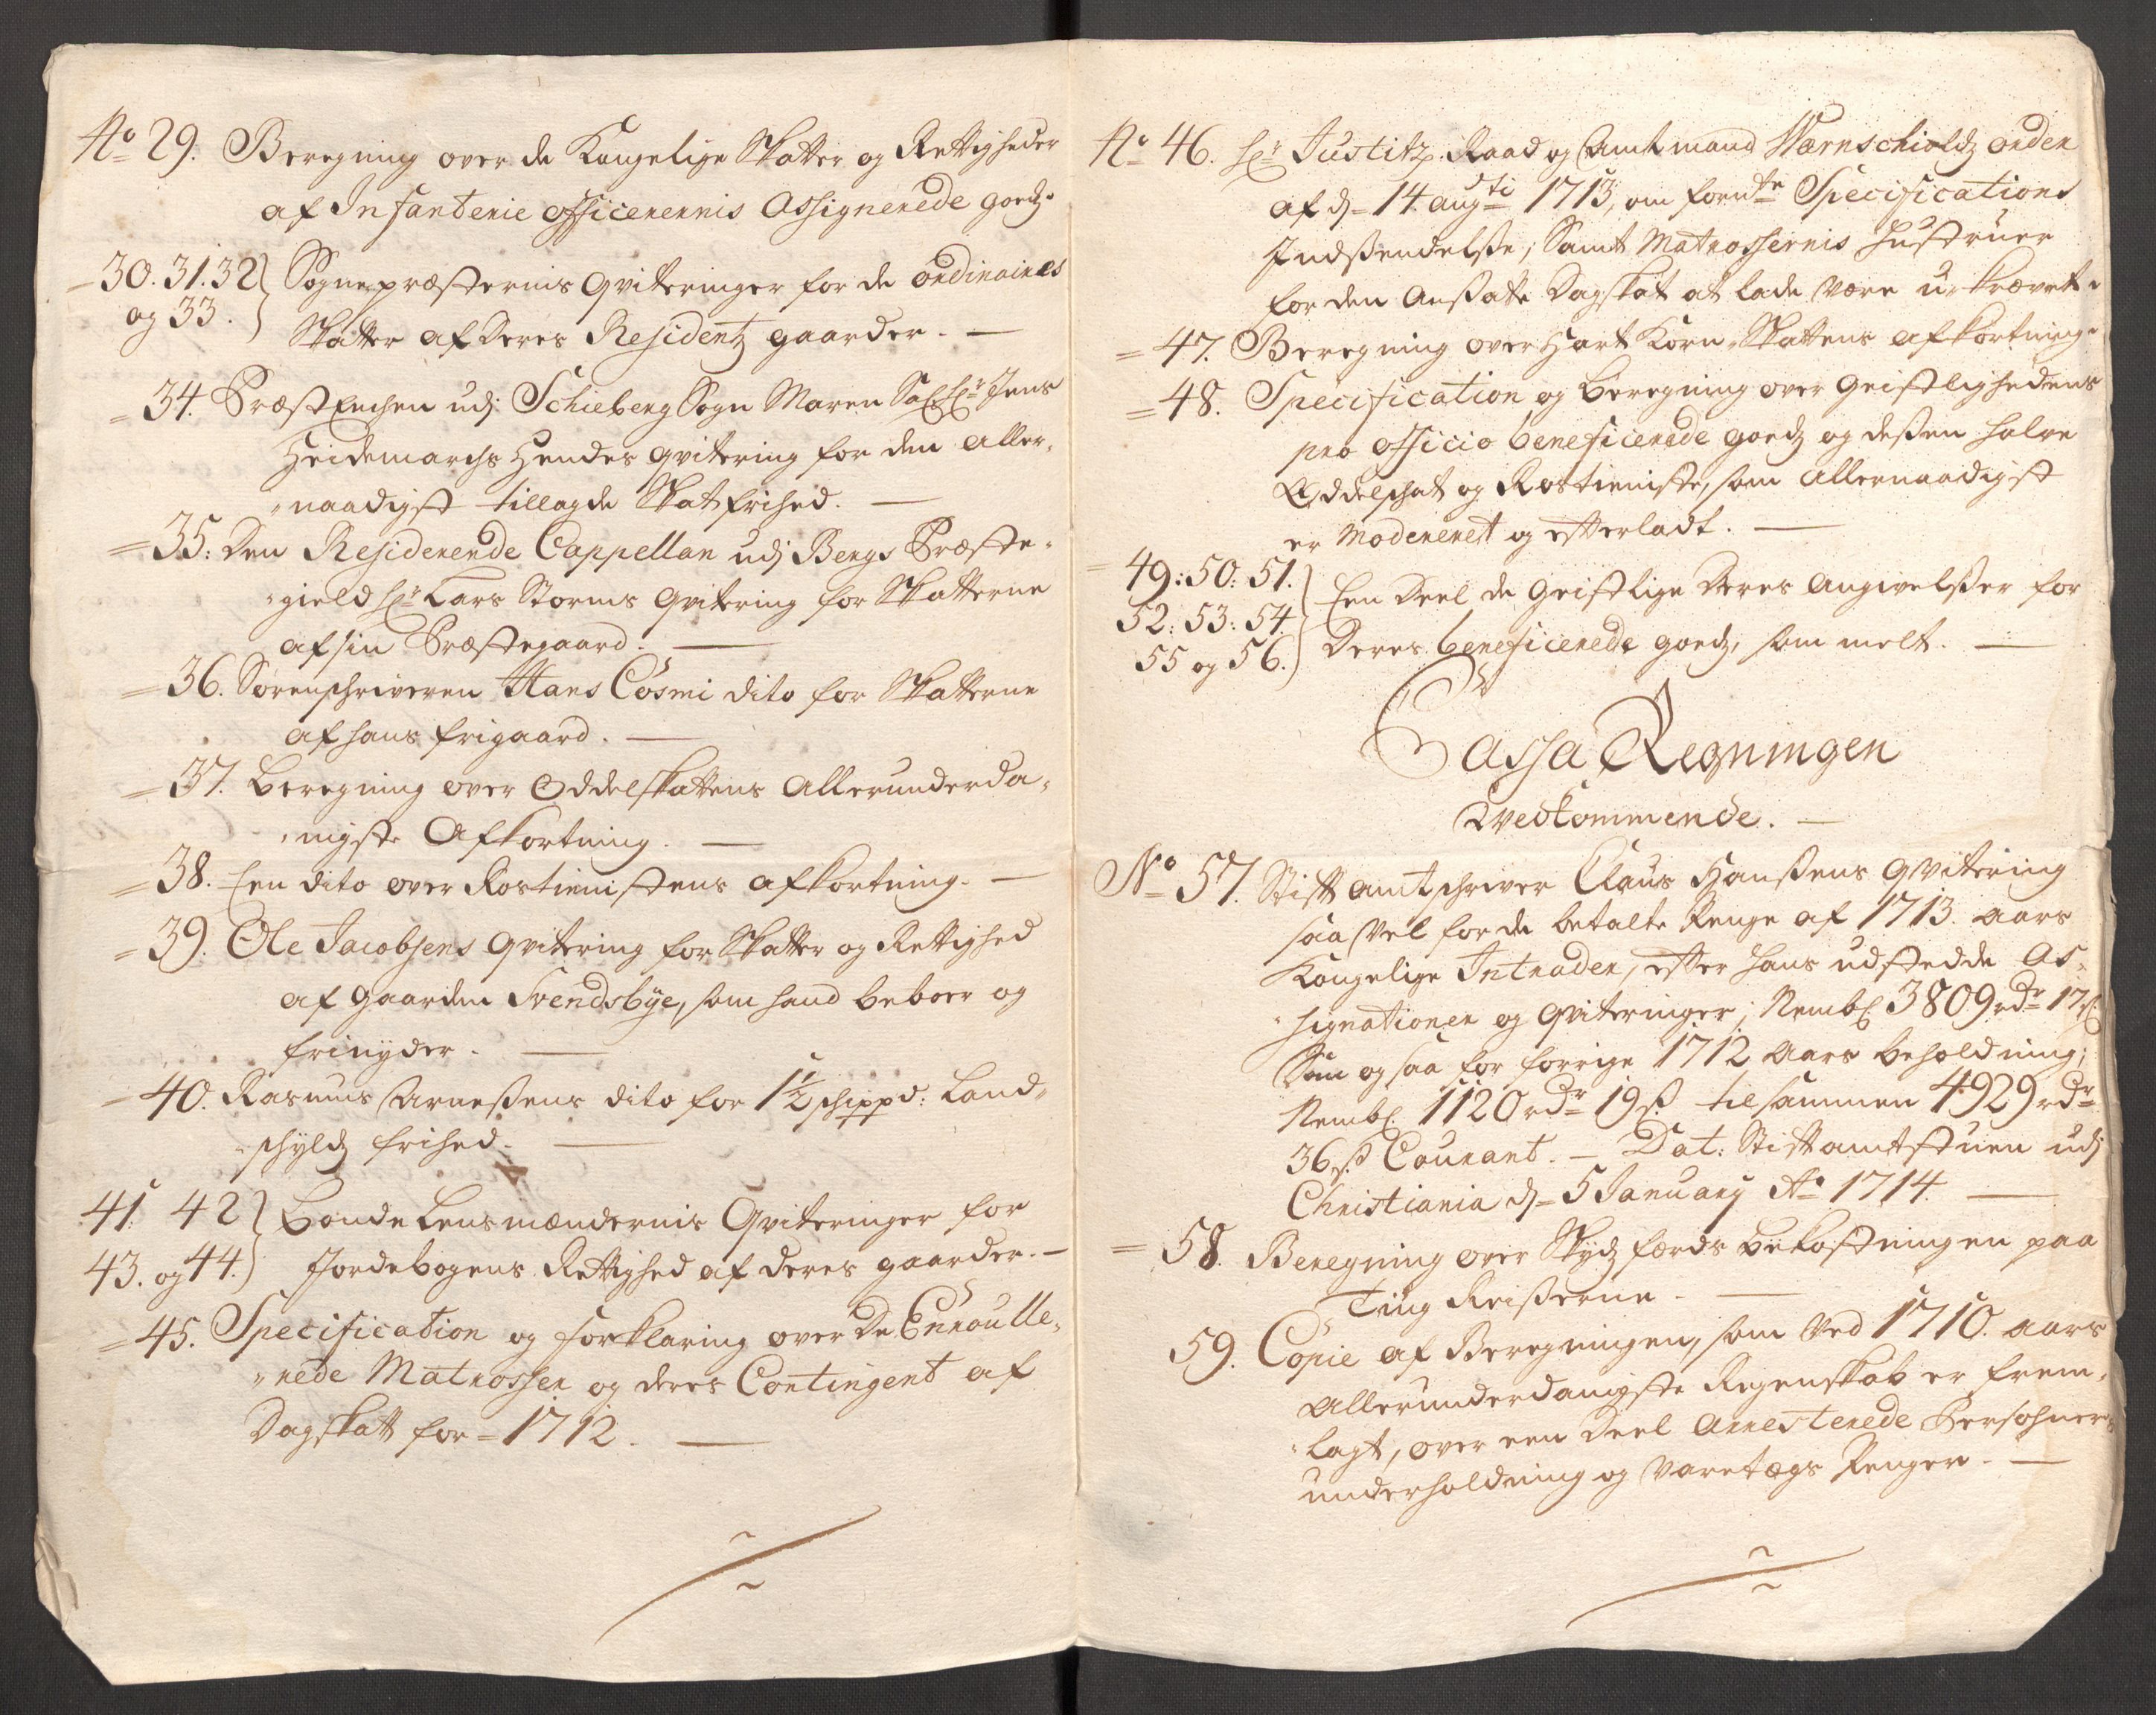 No 29. Beregning over de Kongelige Skatter og Rettigheder
af Infanterie officerernis Assignerede goedz.
30. 31. 32 Sognepræsternis qviteringer for de ordinaires
og 33. Skatter af deres Residentz gaarder. —
= 34. Præst Enchen udj Schieberg Sogn Maren Sal. Hr. Jens
Heidemarchs Hendes qvitering for den aller-
naadigst tillagde Skat frihed. —
= 35: Den Residerende Cappellan udj Bergs Præste-
gield Hr. Lars Storms qvitering for Skatterne
af sin Præstegaard. —
= 36. Sorenschriveren Hans Cosmi dito for Skatterne
af hans frigaard. —
= 37. beregning over Oddelskattens Allerunderda-
nigste Afkortning. —
= 38. Een dito over Rostienistens afkortning. —
= 39. Ole Jacobsens qvitering for Skatter og Rettighed
af gaarden Svendsbye, som hand beboer og
frinyder. —
= 40. Rasmus Arneßens dito for 1½ schippd: Land-
schyldz frihed. —
41. 42 Bonde Lensmændernis Qviteringer for
43. og 44. Jordebogens Rettighed af deres gaarder. —
= 45. Specification og forklaring over De Enroulle-
rede Matrosser og deres Contingent af
Dagskatt for = 1712. —
No 46. Hr. Justitz Raad og Amtmand Wærnschioldz order
af d= 14 augti 1713, om fornte Specifications
Indßendelße, Samt Matrossernis Hustruer
for den Ansatte Dagskat at lade være u-krævet.
= 47. Beregning over Hart Korn-Skattens afkortning.
= 48. Specification og beregning over geistlighedens
pro officio beneficerede goedz og deßen halve
Oddelschat og Rostieniste, som allernaadigst
er Modereret og efterladt. —
= 49: 50: 51. Een Deel de Geistlige deres angivelßer for
52: 53: 54. deres beneficerede goedz, som melt. —
55 og 56.
Cassa Regningen
Vedkommende. —
No 57. Stiftamtschriver Claus Hanßens qvitering
saa vel for de betalte Penge af 1713. aars
Kongelige Intrader, efter hans udstedde As-
signationer og qviteringer, Nembl. 3809 rdr 17 ß.
Som og saa for forrige 1712 Aars beholdning,
Nembl. 1120 rdr 19 ß. tilsammen 4929 rdr
36 ß. Courant. — Dat: Stiftamtstuen udj
Christiania d= 5 January Ao 1714. —
= 58. Beregning over Skydz færds bekostningen paa
Ting Reißerne. —
59. Copie af Beregningen, som ved 1710. aars
Allerunderdanigste Regenskab er frem-
lagt, over een Deel Arresterede Personers
underholdning og varetægs Penger. —